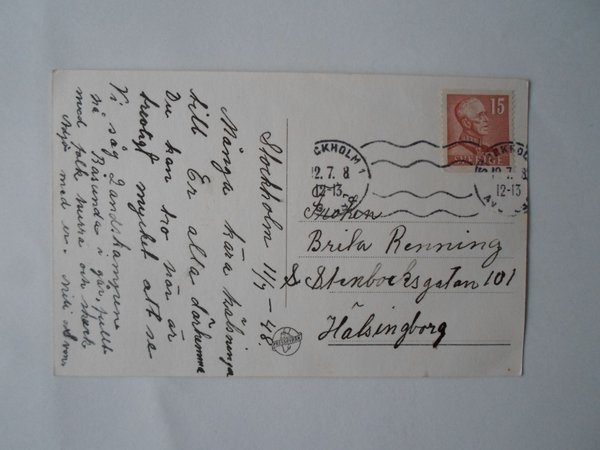 Stockholm 11/7 – 48.
Många kära hälsningar
till Er alla därhemma
Du kan tro här är
trevligt mycket att se
Vi såg Landskampen
på Råsunda i går, fullt
med folk hurra och
med er.
15
SVERIGE
CKHOLM 1
12.7.8
12-13
12.7.8
12-13
Fröken
Brita Renning
S. Stenbocksgatan 101
Hälsingborg